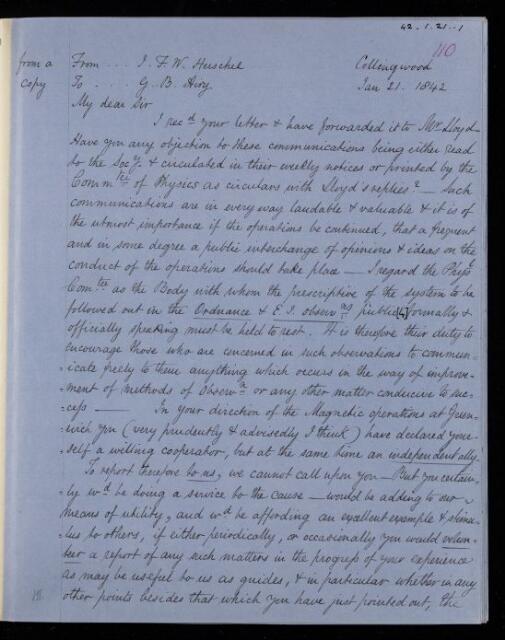 42.1.21.1
110
from a
copy
From ... J. F. W. Herschel
Collingwood
To ..... G. B. Airy.
Jan 21. 1842
My dear Sir
I recd your letter & have forwarded it to Mr Lloyd_
Have you any objection to these communications being either read
to the Socy. & circulated in their weekly notices or printed by the
Commtee of Physics as circulars with Lloyd's replies? — Such
communications are in every way laudable & valuable & it is of
the utmost importance if the operations be continued, that a frequent
and in some degree a public interchange of opinions & ideas on the
conduct of the operations should take place — I regard the Physl
Comtee as the Body with whom the prescriptive of the system to be
followed out in the Ordnance & E. I. observns public[ly] formally &
officially speaking must be held to rest. It is therefore their duty to
encourage those who are concerned in such observations to commun-
-icate freely to them anything which occurs in the way of improve-
-ment of methods of observn or any other matter conducive to suc-
-cess — In your direction of the Magnetic operations at Green-
-wich you (very prudently & advisedly I think) have declared your-
-self a willing cooperator, but at the same time an independent ally.
To report therefore to us, we cannot call upon you — But you certain-
-ly wd be doing a service to the cause — would be adding to our
means of utility, and wd be affording an excellent example & stimu-
-lus to others, if either periodically, or occasionally you would volun-
-teer a report of any such matters in the progress of your experience
as may be useful to us as guides, & in particular whether in any
other points besides that which you have just pointed out, the